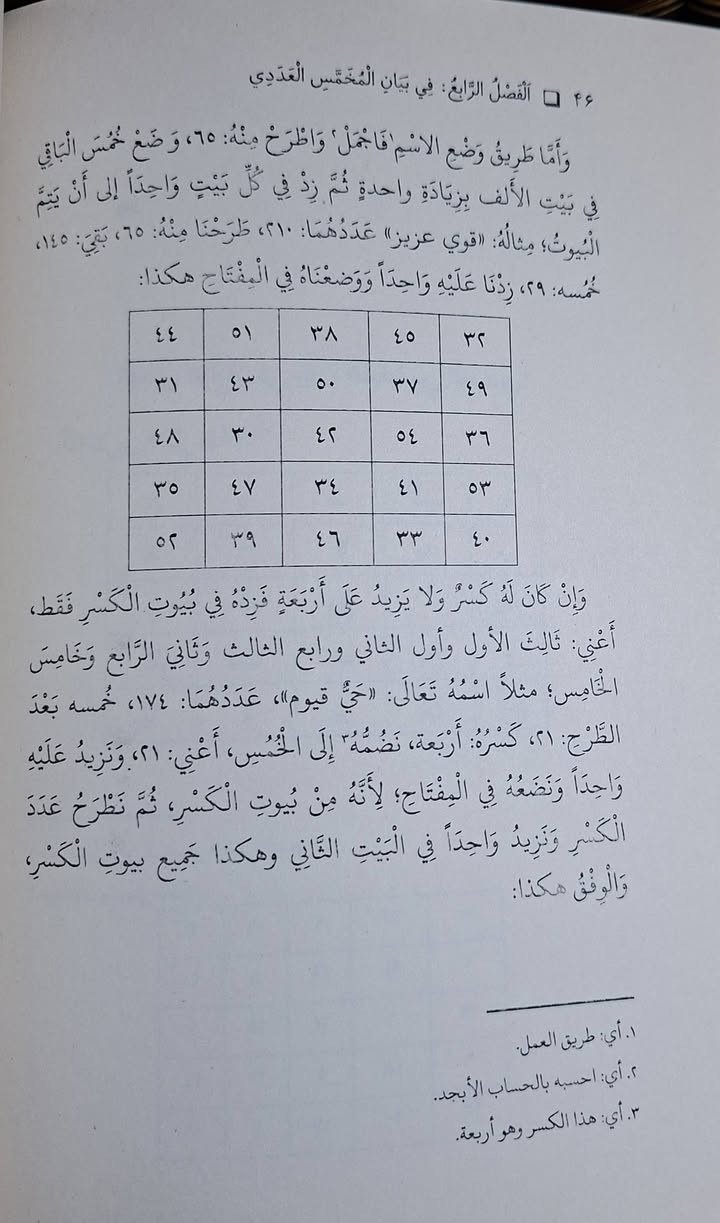 ۴۶ ❏ اَلْفَصْلُ الرَّابِعُ: فِي بَيَانِ الْمُخَمَّسِ الْعَدَدِي
وَأَمَّا طَرِيقُ وَضْعِ الاِسْمِ١ فَاجْمَلْ٢ وَاطْرَحْ مِنْهُ: ٦٥، وَضَعْ خُمُسَ الْبَاقِي
فِي بَيْتِ الأَلف بِزِيَادَةِ واحدةٍ ثُمَّ زِدْ فِي كُلِّ بَيْتٍ وَاحِدَاً إلى أَنْ يَتِمَّ
الْبُيوتُ؛ مِثالُهُ: «قوي عزيز» عَدَدُهُمَا: ٢١٠، طَرَحْنَا مِنْهُ: ٦٥، بَقِيَ: ١٤٥،
خُمُسه: ٢٩، زِدْنَا عَلَيْهِ وَاحِدَاً وَوَضعْنَاهُ فِي الْمِفْتَاحِ هكذا:
٣٢ ٤٥ ٣٨ ٥١ ٤٤
٤٩ ٣٧ ٥٠ ٤٣ ٣١
٣٦ ٥٤ ٤٢ ٣٠ ٤٨
٥٣ ٤١ ٣٤ ٤٧ ٣٥
٤٠ ٣٣ ٤٦ ٣٩ ٥٢
وَإِنْ كَانَ لَهُ كَسْرٌ وَلا يَزِيدُ عَلَى أَرْبَعَةٍ فَزِدْهُ فِي بُيُوتِ الْكَسْرِ فَقَط،
أَعْنِي: ثَالِثَ الأول وأول الثاني ورابع الثالث وَثَانِيَ الرَّابع وَخَامِسَ
الْخَامِس؛ مثلاً اسْمُهُ تَعَالَى: «حَيٌّ قيوم»، عَدَدُهُمَا: ١٧٤، خُمسه بَعْدَ
الطَّرْحِ: ٢١، كَسْرُهُ: أَرْبَعة، نَضُمُّهُ٣ إِلَى الْخُمُسِ، أَعْنِي: ٢١، وَنَزِيدُ عَلَيْهِ
وَاحِدَاً وَنَضَعُهُ فِي الْمِفْتَاحِ؛ لِأَنَّهُ مِنْ بُيوتِ الْكَسْرِ، ثُمَّ نَطْرَحُ عَدَدَ
الْكَسْرِ وَنَزِيدُ وَاحِدَاً فِي الْبَيْتِ الثَّانِي وهكذا جَمِيع بيوتِ الْكَسْرِ،
وَالْوِفْقُ هكذا:
١. أي: طريق العمل.
٢. أي: احسبه بالحساب الأبجد.
٣. أي: هذا الكسر وهو أربعة.